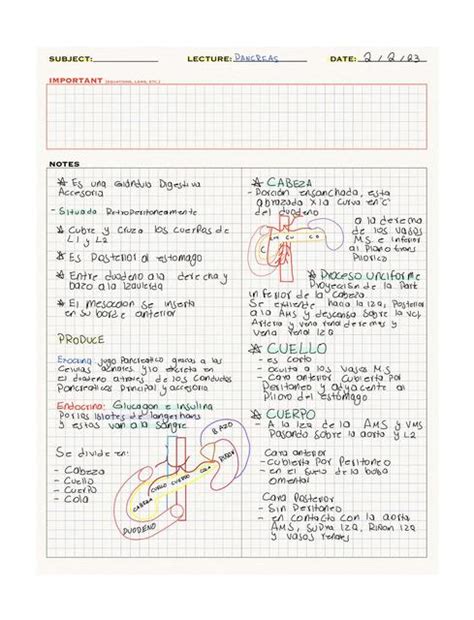 SUBJECT: LECTURE: PANCREAS DATE: 2/2/23
IMPORTANT (EQUATIONS, LAWS, ETC.)
NOTES
☆ Es una Glándula Digestiva
Accesoria
- Situada RetroPeritoneamente
☆ Cubre y Cruza los Cuerpos de
L1 y L2
☆ Es Posterior al estomago
☆ Entre duodeno a la derecha y
bazo a la Izquierda
☆ El mesocolon se inserta
en su borde anterior
PRODUCE
Exocrina: Jugo Pancreatico gracias a las
Celulas acinares y lo excreta en
El duodeno atraves de los Conductos
Pancreaticos Principal y accesorio
Endocrina: Glucagon e insulina
Por los islotes de langerhans
y estas van a la sangre
Se divide en:
- Cabeza
- Cuello
- Cuerpo
- Cola
BAZO
RIÑON
COLA
CUERPO
CUELLO
CABEZA
DUODENO
☆ CABEZA
- Porción ensanchada, esta
abrazada x la curva en "C"
del duodeno
a la derecha
de los vasos
MS e inferior
al Plano trans
Pilorico
C CU CO
☆ Proceso Unciforme
Proyección de la Part
inferior de la Cabeza
Se extiende hacia la IZQ, Posterior
a la AMS y descansa sobre la VCI
Arteria y vena renal deremas y
Vena renal IZQ.
☆ CUELLO
- es corto
- oculta a los vasos MS
- Cara anterior Cubierta Por
Peritoneo y Adyacente al
Piloro del estómago
☆ CUERPO
- A la IZQ de la AMS y VMS
Pasando sobre la aorta y L2
Cara anterior
- Cubierta Por Peritoneo
- en el suelo de la bolsa
omental
Cara Posterior
- Sin Peritoneo
- en contacto con la aorta
AMS, Supra IZQ, Riñon IZQ
y vasos renales